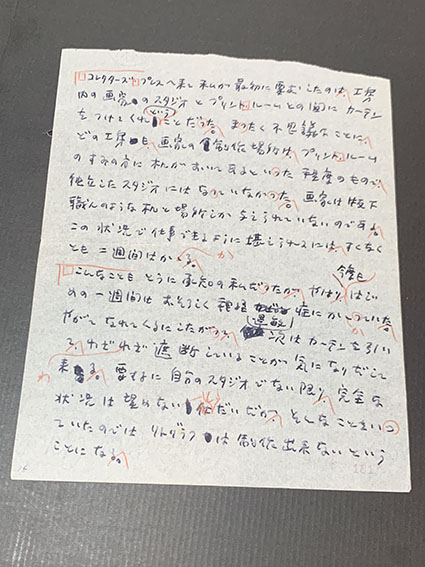 コレクターズプレスへ来て私が最初に要求したのは、工房
内の画家のスタジオとプリントルームとの間にカーテン
をつけてくれということだった。まったく不思議なことに、
どの工房も画家の制作場所は、プリントルーム
のすみの方に机がおいてあるといった程度のもので、
独立したスタジオにはなっていなかった。画家は版下
職人のような机と場所しかあたえられていないのである。
この状況で仕事できるように堪えられるには、すくなく
とも二週間はかかる。
こんなことも とうに承知の私だったが、今度も やはりはじ
めの一週間はおそろしく神経過敏症にかかっていた。
やがてなれてくるにしたがって、次はカーテンを引い
てわざわざ遮断していることが気になりだして
来る。要するに自分のスタジオでない限り、完全な
状況は望めない だが、そんなことをいっ
ていたのではリトグラフは制作出来ないという
ことになる。
181